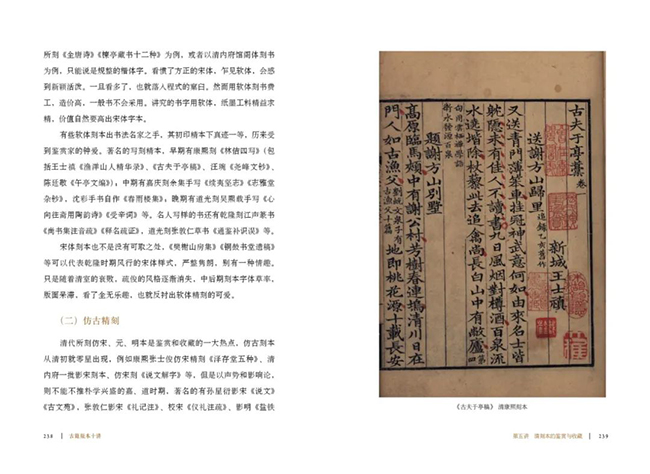 所刻《全唐诗》《楝亭藏书十二种》为例，或者以清内府馆阁体刻书
为例，只能说是规整的楷体字。看惯了方正的宋体，乍见软体，会感
到新颖活泼。一旦看多了，也就落入程式的窠臼。然而用软体刻书费
工，造价高，一般书不会采用。讲究的书字用软体，纸墨工料精益求
精，价值自然要高出宋体字本。
有些软体刻本出书法名家之手，其初印精本下真迹一等，历来受
到鉴赏家的钟爱。著名的写刻精本，早期有康熙刻《林佶四写》（包
括王士禛《渔洋山人精华录》、《古夫于亭稿》、汪琬《尧峰文钞》、
陈廷敬《午亭文编》）；中期有嘉庆刻余集手写《续夷坚志》《志雅堂
杂钞》，沈彩手书自作《春雨楼集》；晚期有道光刻吴熙载手写《心
向往斋用陶韵诗》《受辛词》等。名人写样的书还有乾隆刻江声篆书
《尚书集注音疏》《释名疏证》、道光刻张敦仁草书《通鉴补识误》等。
宋体刻本也不是没有可取之处，《樊榭山房集》《铜鼓书堂遗稿》
等可以代表乾隆时期风行的宋体样式，严整隽朗，别有一种情趣，
只是随着清室的衰败，疏俊的风格逐渐消失，中后期刻本字体草率，
版面呆滞，看了全无乐趣，也就反衬出软体精刻的可爱。
（二）仿古精刻
清代所刻仿宋、元、明本是鉴赏和收藏的一大热点，仿古刻本
从清初就零星出现，例如康熙张士俊仿宋精刻《泽存堂五种》、清
内府一批影宋刻本、仿宋刻《说文解字》等，但是以声势和影响论，
则不能不推朴学兴盛的嘉、道时期，著名的有孙星衍影宋《说文》
《古文苑》，张敦仁影宋《礼记注》、校宋《仪礼注疏》、影明《盐铁
238 ｜ 古籍版本十讲
古夫于亭藁卷一
新城王士禛
送謝方山歸里
又送青門薄笨車挂冠神武意何如由來名士皆
躭隱未有佳人不讀書九日風烟對樽酒百泉流
水遶堦除杖藜此去追禽尚長白山中有敝廬
題謝方山别墅
高原臨馬頰中有謝公村芳樹春連塢清川日在
門人如古漁父地即桃花源十載長安
《古夫于亭稿》 清康熙刻本
第五讲 清刻本的鉴赏与收藏 ｜ 239